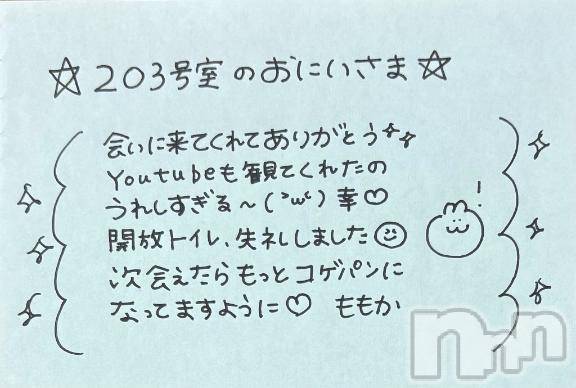 ☆203号室のおにいさま☆
会いに来てくれてありがとう
Youtubeも観てくれたの
うれしすぎる〜(՝ω՝)幸♡
開放トイレ、失礼しました☺
次会えたらもっとコゲパンに
なってますように♡ ももか
!